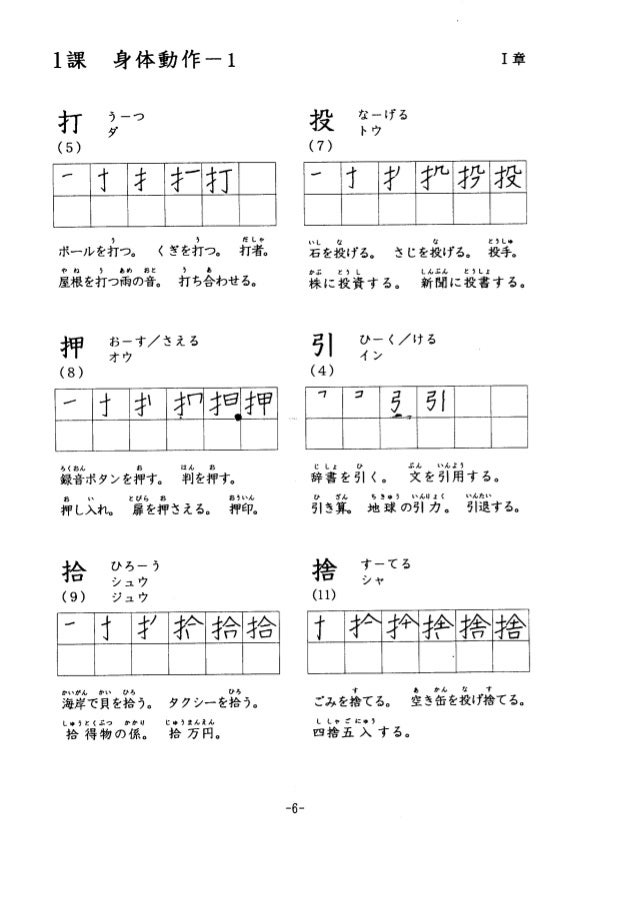 1課 身体動作－1 Ⅰ章
打 うーつ
ダ
(5)
一 扌 打
うだしゃ
ボールを打つ。 くぎを打つ。 打者。
やねうあめおとうあ
屋根を打つ雨の音。 打ち合わせる。
投 なーげる
トウ
(7)
一 扌 投
いしなとうしゅ
石を投げる。 さじを投げる。 投手。
かぶとうししんぶんとうしょ
株に投資する。 新聞に投書する。
押 おーす/さえる
オウ
(8)
一 扌 押
ろくおんおはんお
録音ボタンを押す。 判を押す。
おいとびらおおういん
押し入れ。 扉を押さえる。 押印。
引 ひーく/ける
イン
(4)
弓 引
じしょひぶんいんよう
辞書を引く。 文を引用する。
ひざんちきゅういんりょくいんたい
引き算。 地球の引力。 引退する。
拾 ひろーう
シュウ
(9) ジュウ
一 扌 拾 拾
かいがんかいひろひろ
海岸で貝を拾う。 タクシーを拾う。
しゅうとくぶつかかりじゅうまんえん
拾得物の係。 拾万円。
捨 すーてる
シャ
(11)
扌 捨 捨 捨
すあかんなす
ごみを捨てる。 空き缶を投げ捨てる。
ししゃごにゅう
四捨五入する。
-6-